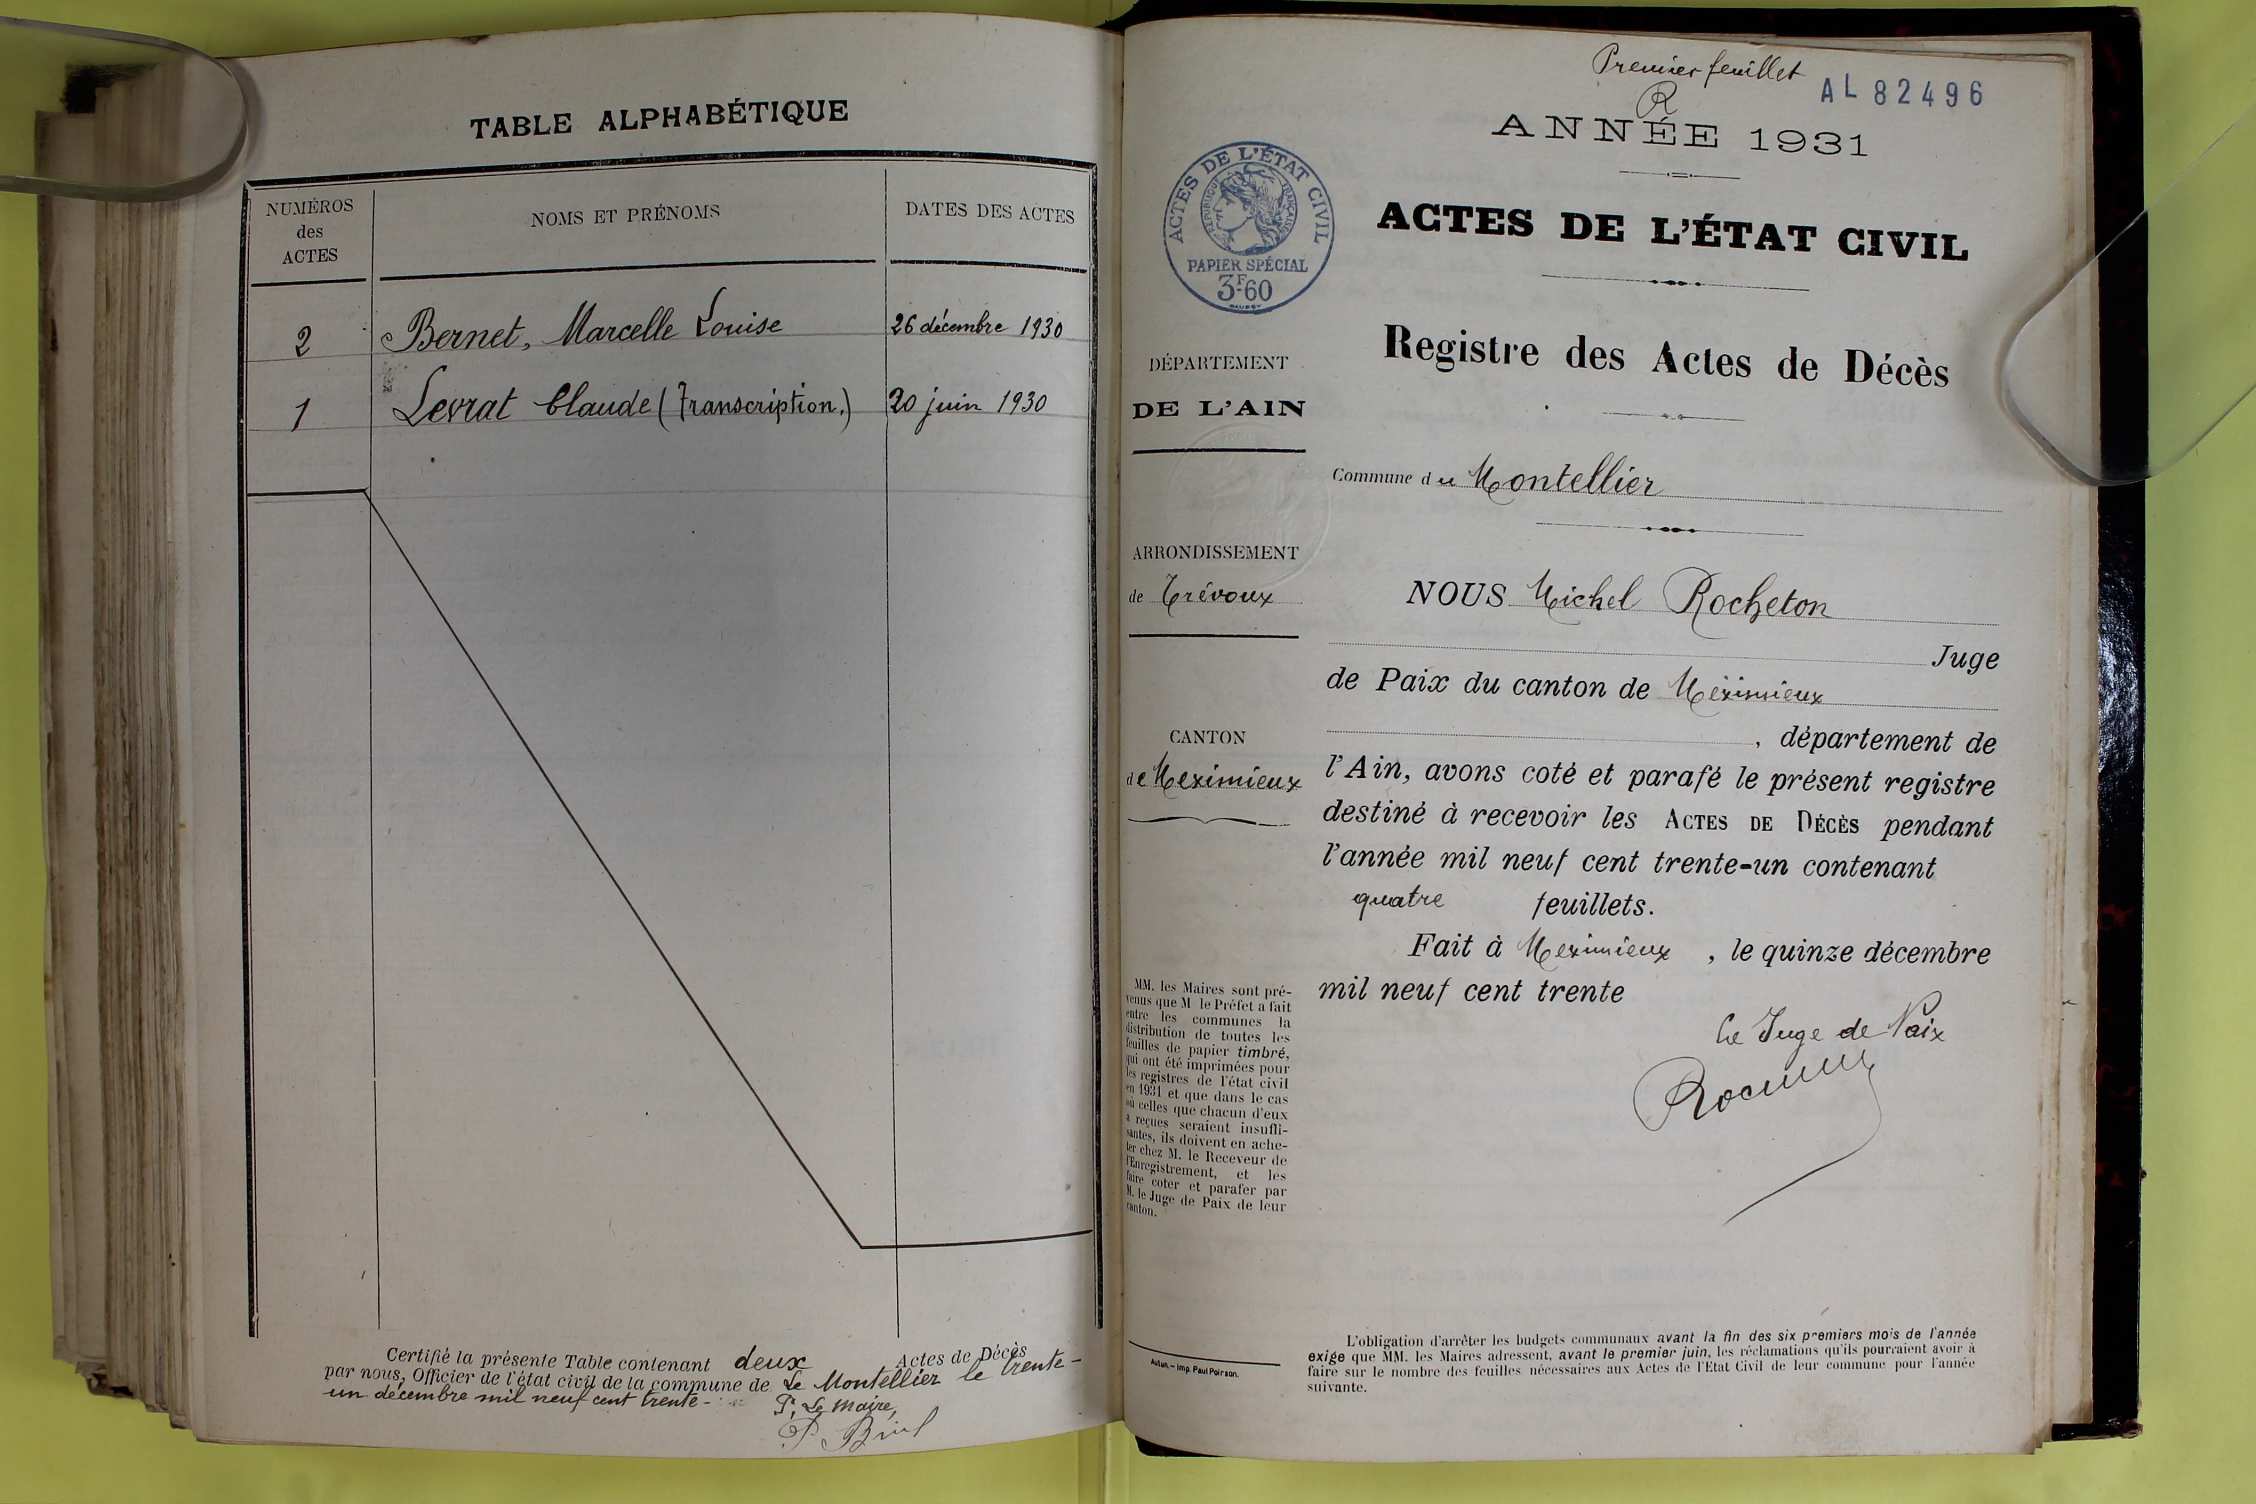 TABLE ALPHABÉTIQUE
NUMÉROS
des
ACTES
NOMS ET PRÉNOMS
DATES DES ACTES
2 Bernet, Marcelle Louise 26 décembre 1930
1 Levrat Claude (Transcription.) 20 juin 1930
Certifié la présente Table contenant deux Actes de Décès
par nous, Officier de l'état civil de la commune de Le Montellier le trente-
un décembre mil neuf cent trente-
Pr Le Maire,
Premier feuillet
R
AL 82496
ANNÉE 1931
ACTES DE L'ÉTAT CIVIL
RÉPUBLIQUE FRANÇAISE
PAPIER SPÉCIAL
3F.60
ACTES DE L'ÉTAT CIVIL
Registre des Actes de Décès
DÉPARTEMENT
DE L'AIN
Commune du Montellier
ARRONDISSEMENT
de Trévoux
NOUS Michel Rocheton
Juge
de Paix du canton de Méximieux
CANTON
de Meximieux
, département de
l'Ain, avons coté et parafé le présent registre
destiné à recevoir les ACTES DE DÉCÈS pendant
l'année mil neuf cent trente-un contenant
quatre feuillets.
Fait à Meximieux, le quinze décembre
mil neuf cent trente
Le Juge de Paix
MM. les Maires sont pré-
venus que M le Préfet a fait
entre les communes la
distribution de toutes les
feuilles de papier timbré,
qui ont été imprimées pour
les registres de l'état civil
en 1931 et que dans le cas
où celles que chacun d'eux
a reçues seraient insuffi-
santes, ils doivent en ache-
ter chez M. le Receveur de
l'Enregistrement, et les
faire coter et parafer par
M. le Juge de Paix de leur
canton.
Autun. — Imp. Paul Poirson.
L'obligation d'arrêter les budgets communaux avant la fin des six premiers mois de l'année
exige que MM. les Maires adressent, avant le premier juin, les réclamations qu'ils pourraient avoir à
faire sur le nombre des feuilles nécessaires aux Actes de l'Etat Civil de leur commune pour l'année
suivante.